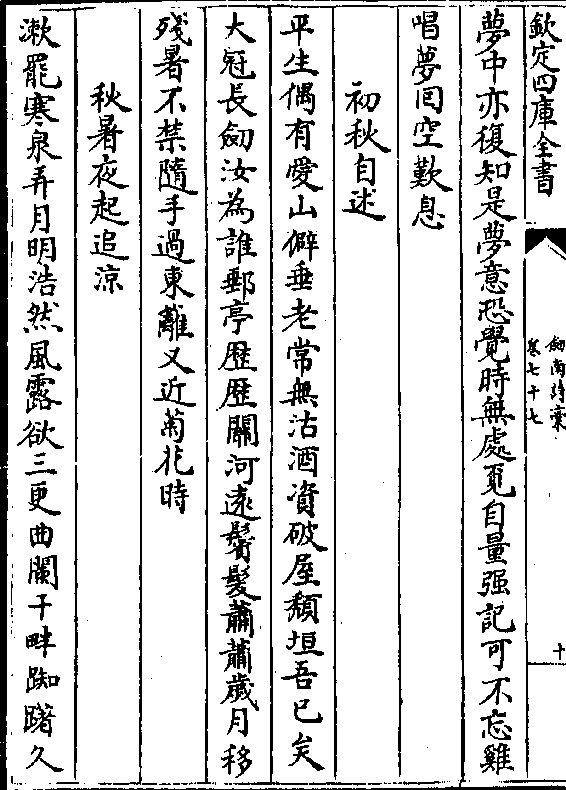 欽定四庫全書
劒南詩稾
卷七十七
十
夢中亦復知是夢意恐覺時無處覔自量强記可不忘雞
唱夢囘空歎息
初秋自述
平生偶有愛山僻垂老常無沽酒資破屋頽垣吾已矣
大冠長劒汝為誰郵亭歴歴關河逺鬢髮蕭蕭歲月移
殘暑不禁隨手過東籬又近菊花時
秋暑夜起追涼
漱罷寒泉弄月明浩然風露欲三更曲闌干畔踟躇久